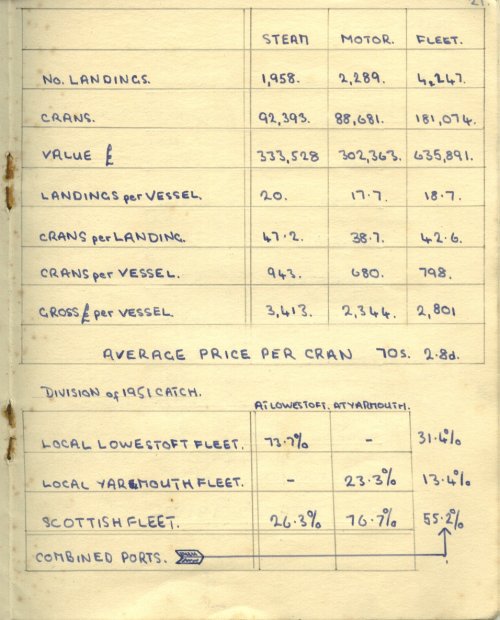 21.
STEAM MOTOR. FLEET.
No. LANDINGS. 1,958. 2,289. 4,247.
CRANS. 92,393. 88,681. 181,074.
VALUE £ 333,528 302,363. 635,891.
LANDINGS per VESSEL. 20. 17·7. 18·7.
CRANS per LANDING. 47·2. 38·7. 42·6.
CRANS per VESSEL. 943. 680. 798.
GROSS £ per VESSEL. 3,413. 2,344. 2,801
AVERAGE PRICE PER CRAN 70s. 2·8d.
DIVISION of 1951 CATCH.
AT LOWESTOFT. AT YARMOUTH.
LOCAL LOWESTOFT FLEET. 73·7% - 31·4%
LOCAL YARMOUTH FLEET. - 23·3% 13·4%
SCOTTISH FLEET. 26·3% 76·7% 55·2%
COMBINED PORTS.